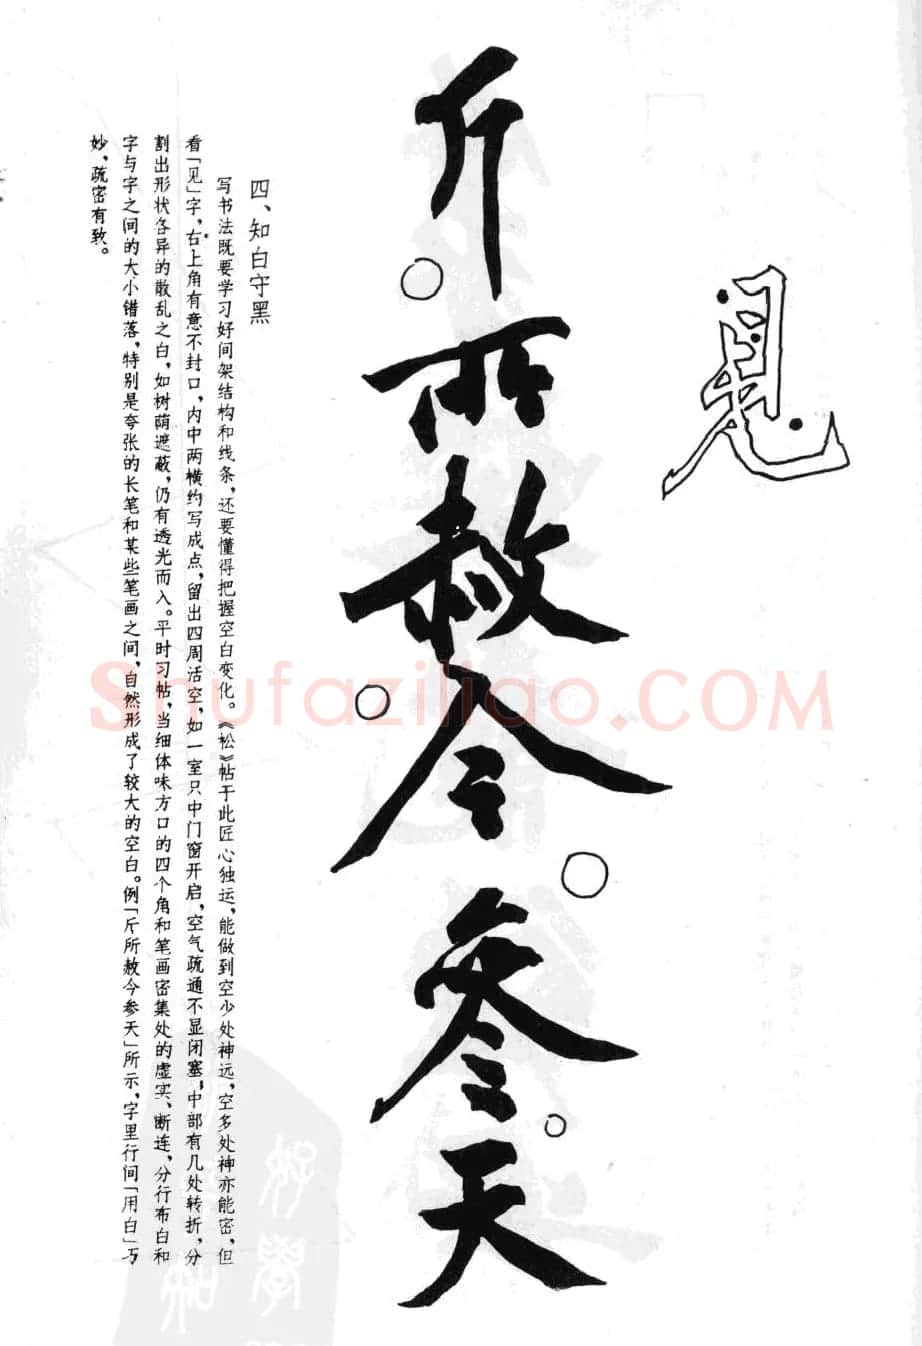 见
斤所赦今参天
四、知白守黑
写书法既要学习好间架结构和线条，还要懂得把握空白变化。《松》帖于此匠心独运，能做到空少处神远，空多处神亦能密，但
看「见」字，右上角有意不封口，内中两横约写成点，留出四周活空，如一室只中门窗开启，空气疏通不显闭塞；中部有几处转折，分
割出形状各异的散乱之白，如树荫遮蔽，仍有透光而入。平时习帖，当细体味方口的四个角和笔画密集处的虚实、断连，分行布白和
字与字之间的大小错落，特别是夸张的长笔和某些笔画之间，自然形成了较大的空白。例「斤所赦今参天」所示，字里行间「用白」巧
妙，疏密有致。
Shufaziliao.COM